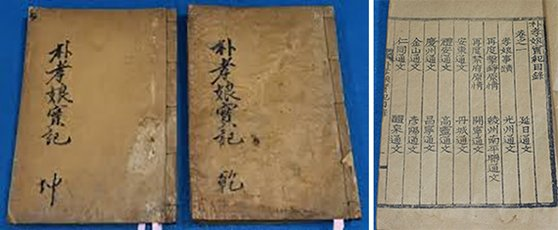 朴孝娘實記 乾
朴孝娘實記 坤
朴孝娘實紀目錄
卷之一 延日通文
孝娘事蹟 光州通文
再度擊錚原情 綾州南平聯通文
再度禁府原情 開寧通文
安東通文 丹城通文
禮安通文 高靈通文
慶州通文 昌寧通文
金山通文 彦陽通文
仁同通文 醴泉通文